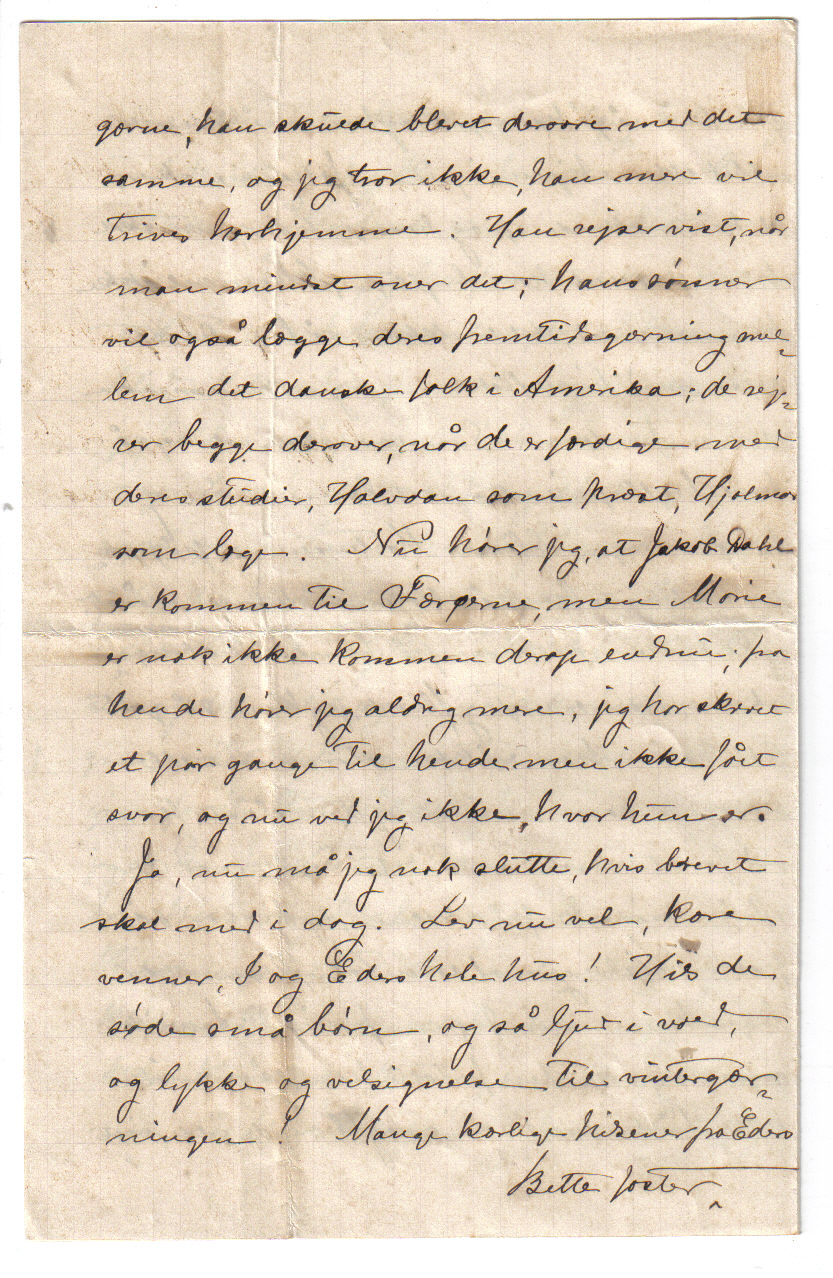 gærne, han skulde blevet derovre med det
samme, og jeg tror ikke, han mere vil
trives herhjemme. Han rejser vist, når
man mindst aner det; hans sønner
vil også lægge deres fremtidsgærning mel-
lem det danske folk i Amerika; de rej-
ser begge derover, når de er færdige med
deres studier, Halvdan som præst, Hjalmar
som læge. Nu hører jeg, at Jakob Dahl
er kommen til Færøerne, men Marie
er nok ikke kommen derop endnu; fra
hende hører jeg aldrig mere, jeg har skrevet
et par gange til hende men ikke fået
svar, og nu ved jeg ikke, hvor hun er.
Ja, nu må jeg nok slutte, hvis brevet
skal med i dag. Lev nu vel, kære
venner, I og Eders hele hus! Hils de
søde små børn, og så ljud i
og lykke og velsignelse til vintergær-
ningen! Mange kærlige hilsener fra Eders
Bette foster